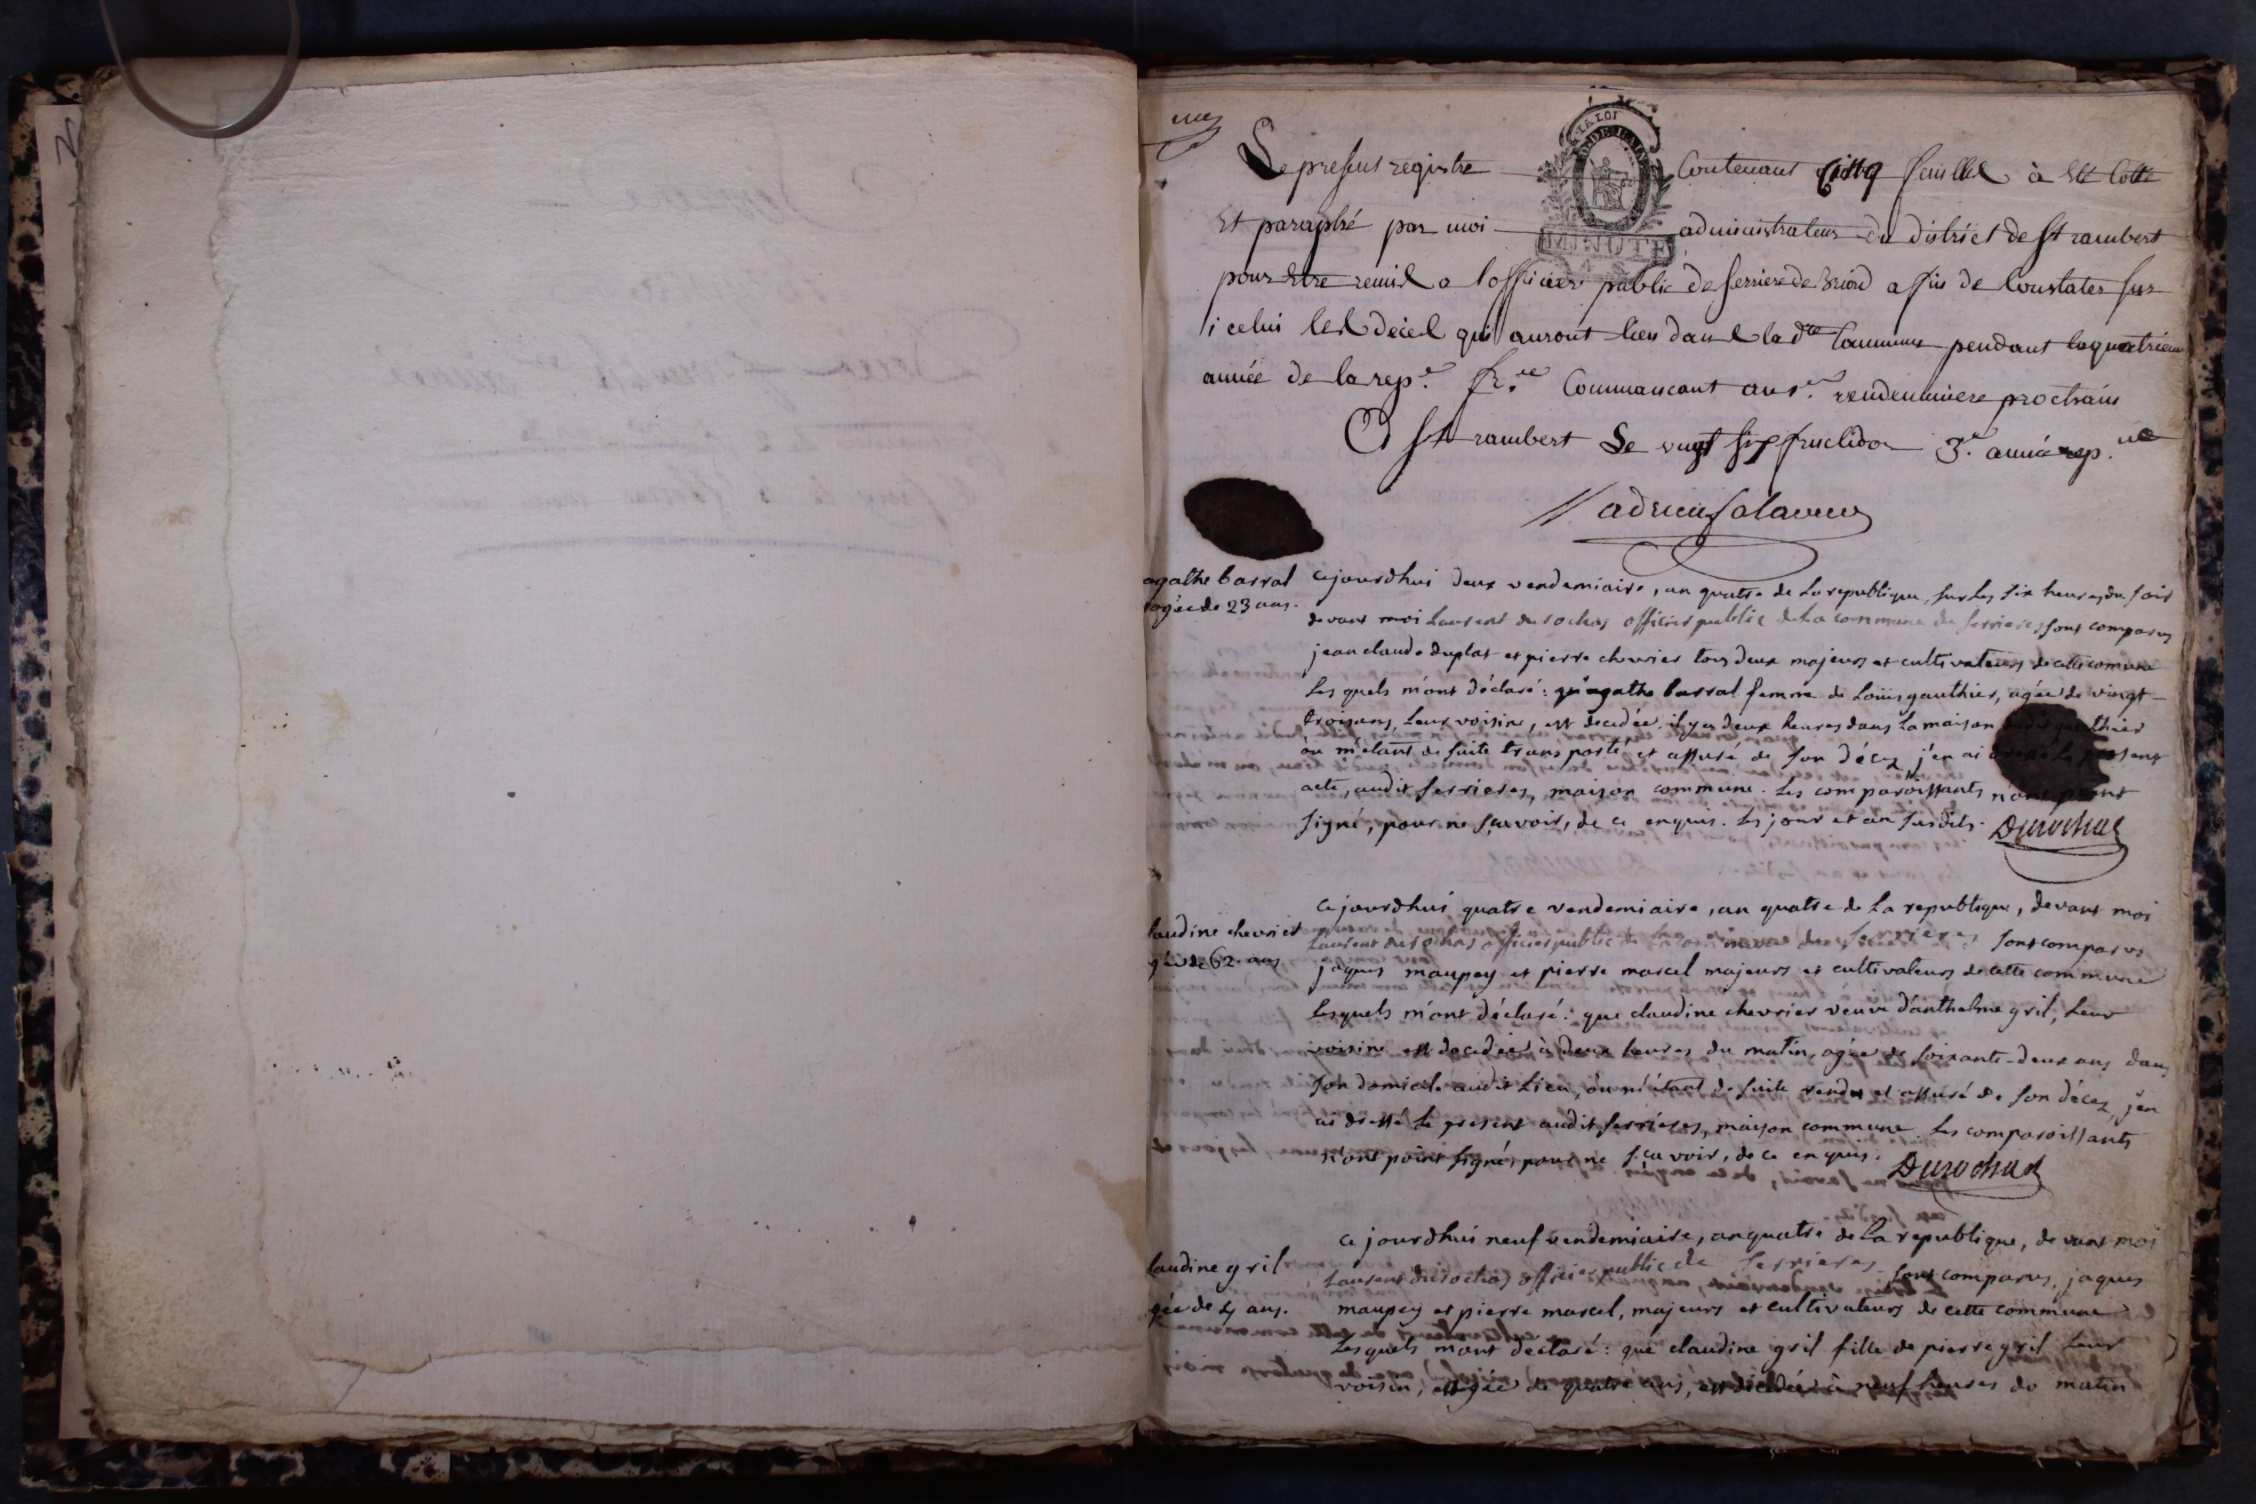 une
Le present registre contenant cinq feuillet à Eté Cotté
Et paraphé par moi administrateur du district de St rambert
pour Etre remis a lofficier public de serriere de Briord affin de Constater sur
icelui les deces qui auront lieu dans la dte Commune pendant la quatrieme
année de la rep.e fr.se Commancant au 1.er vendemiere prochain
A St rambert Le vingt six fructidor 3.e année rep.ne
LA LOI
MINUTE
agathe barral
agée de 23 ans.
cejourdhui deux vendemiaire, an quatre de la republique, sur les six heures du soir
devant moi Laurent durochas officier public de La commune de serrieres sont comparus
jean claude duplat et pierre chevrier tous deux majeurs et cultivateurs de cette comune
Les quels m'ont déclaré: qu'agathe barral femme de Loüis gauthier, agée de vingt-
trois ans, leur voisine, est decedée il y a deux heures dans la maison dudit gauthier
où m'etant de suite transporté et assuré de son décez j'en ai dressé le present
acte, audit serrieres, maison commune. Les comparoissants n'ont point
signé, pour ne sçavoir, de ce enquis. Les jour et an susdits. Durochas
laudine chevrier
gée de 62 ans
cejourdhui quatre vendemiaire, an quatre de la republique, devant moi
Laurent durochas officier public de la commune de serrieres sont comparus
jaques maupey et pierre marcel majeurs et cultivateurs de cette commune
lesquels m'ont déclaré: que claudine chevrier veuve d'anthelme gril, leur
voisine est decedée à deux heures du matin, agée de soixante-deux ans dans
son domicile audit lieu, où m'étant de suite rendu et assuré de son décez, j'en
ai dressé le present audit serrieres, maison commune Les comparoissants
n'ont point signé, pour ne sçavoir, de ce enquis. Durochas
laudine gril
gée de 4 ans.
cejourdhui neuf vendemiaire, an quatre de la republique, devant moi
Laurent durochas officier public de serrieres sont comparus, jaques
maupey et pierre marcel, majeurs et cultivateurs de cette commune
Lesquels m'ont déclaré: que claudine gril fille de pierre gril leur
voisin, agée de quatre ans, est décédée à neuf heures du matin